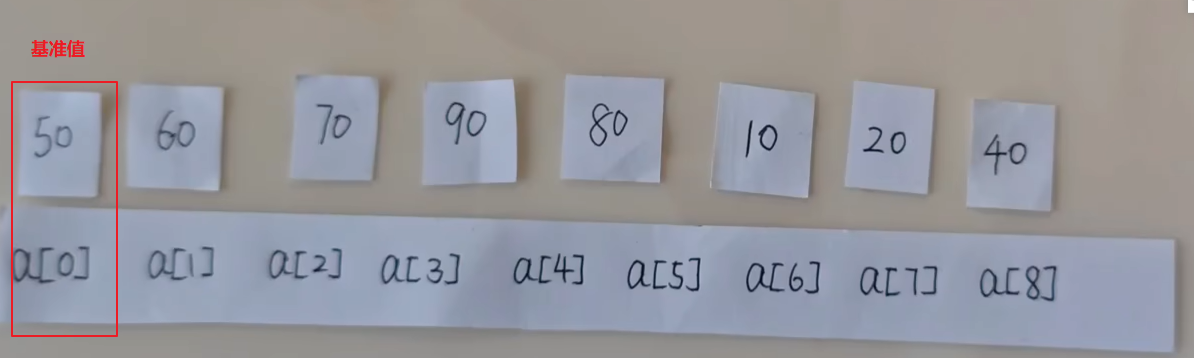 基准值
50 60 70 90 80 10 20 40
a[0] a[1] a[2] a[3] a[4] a[5] a[6] a[7] a[8]